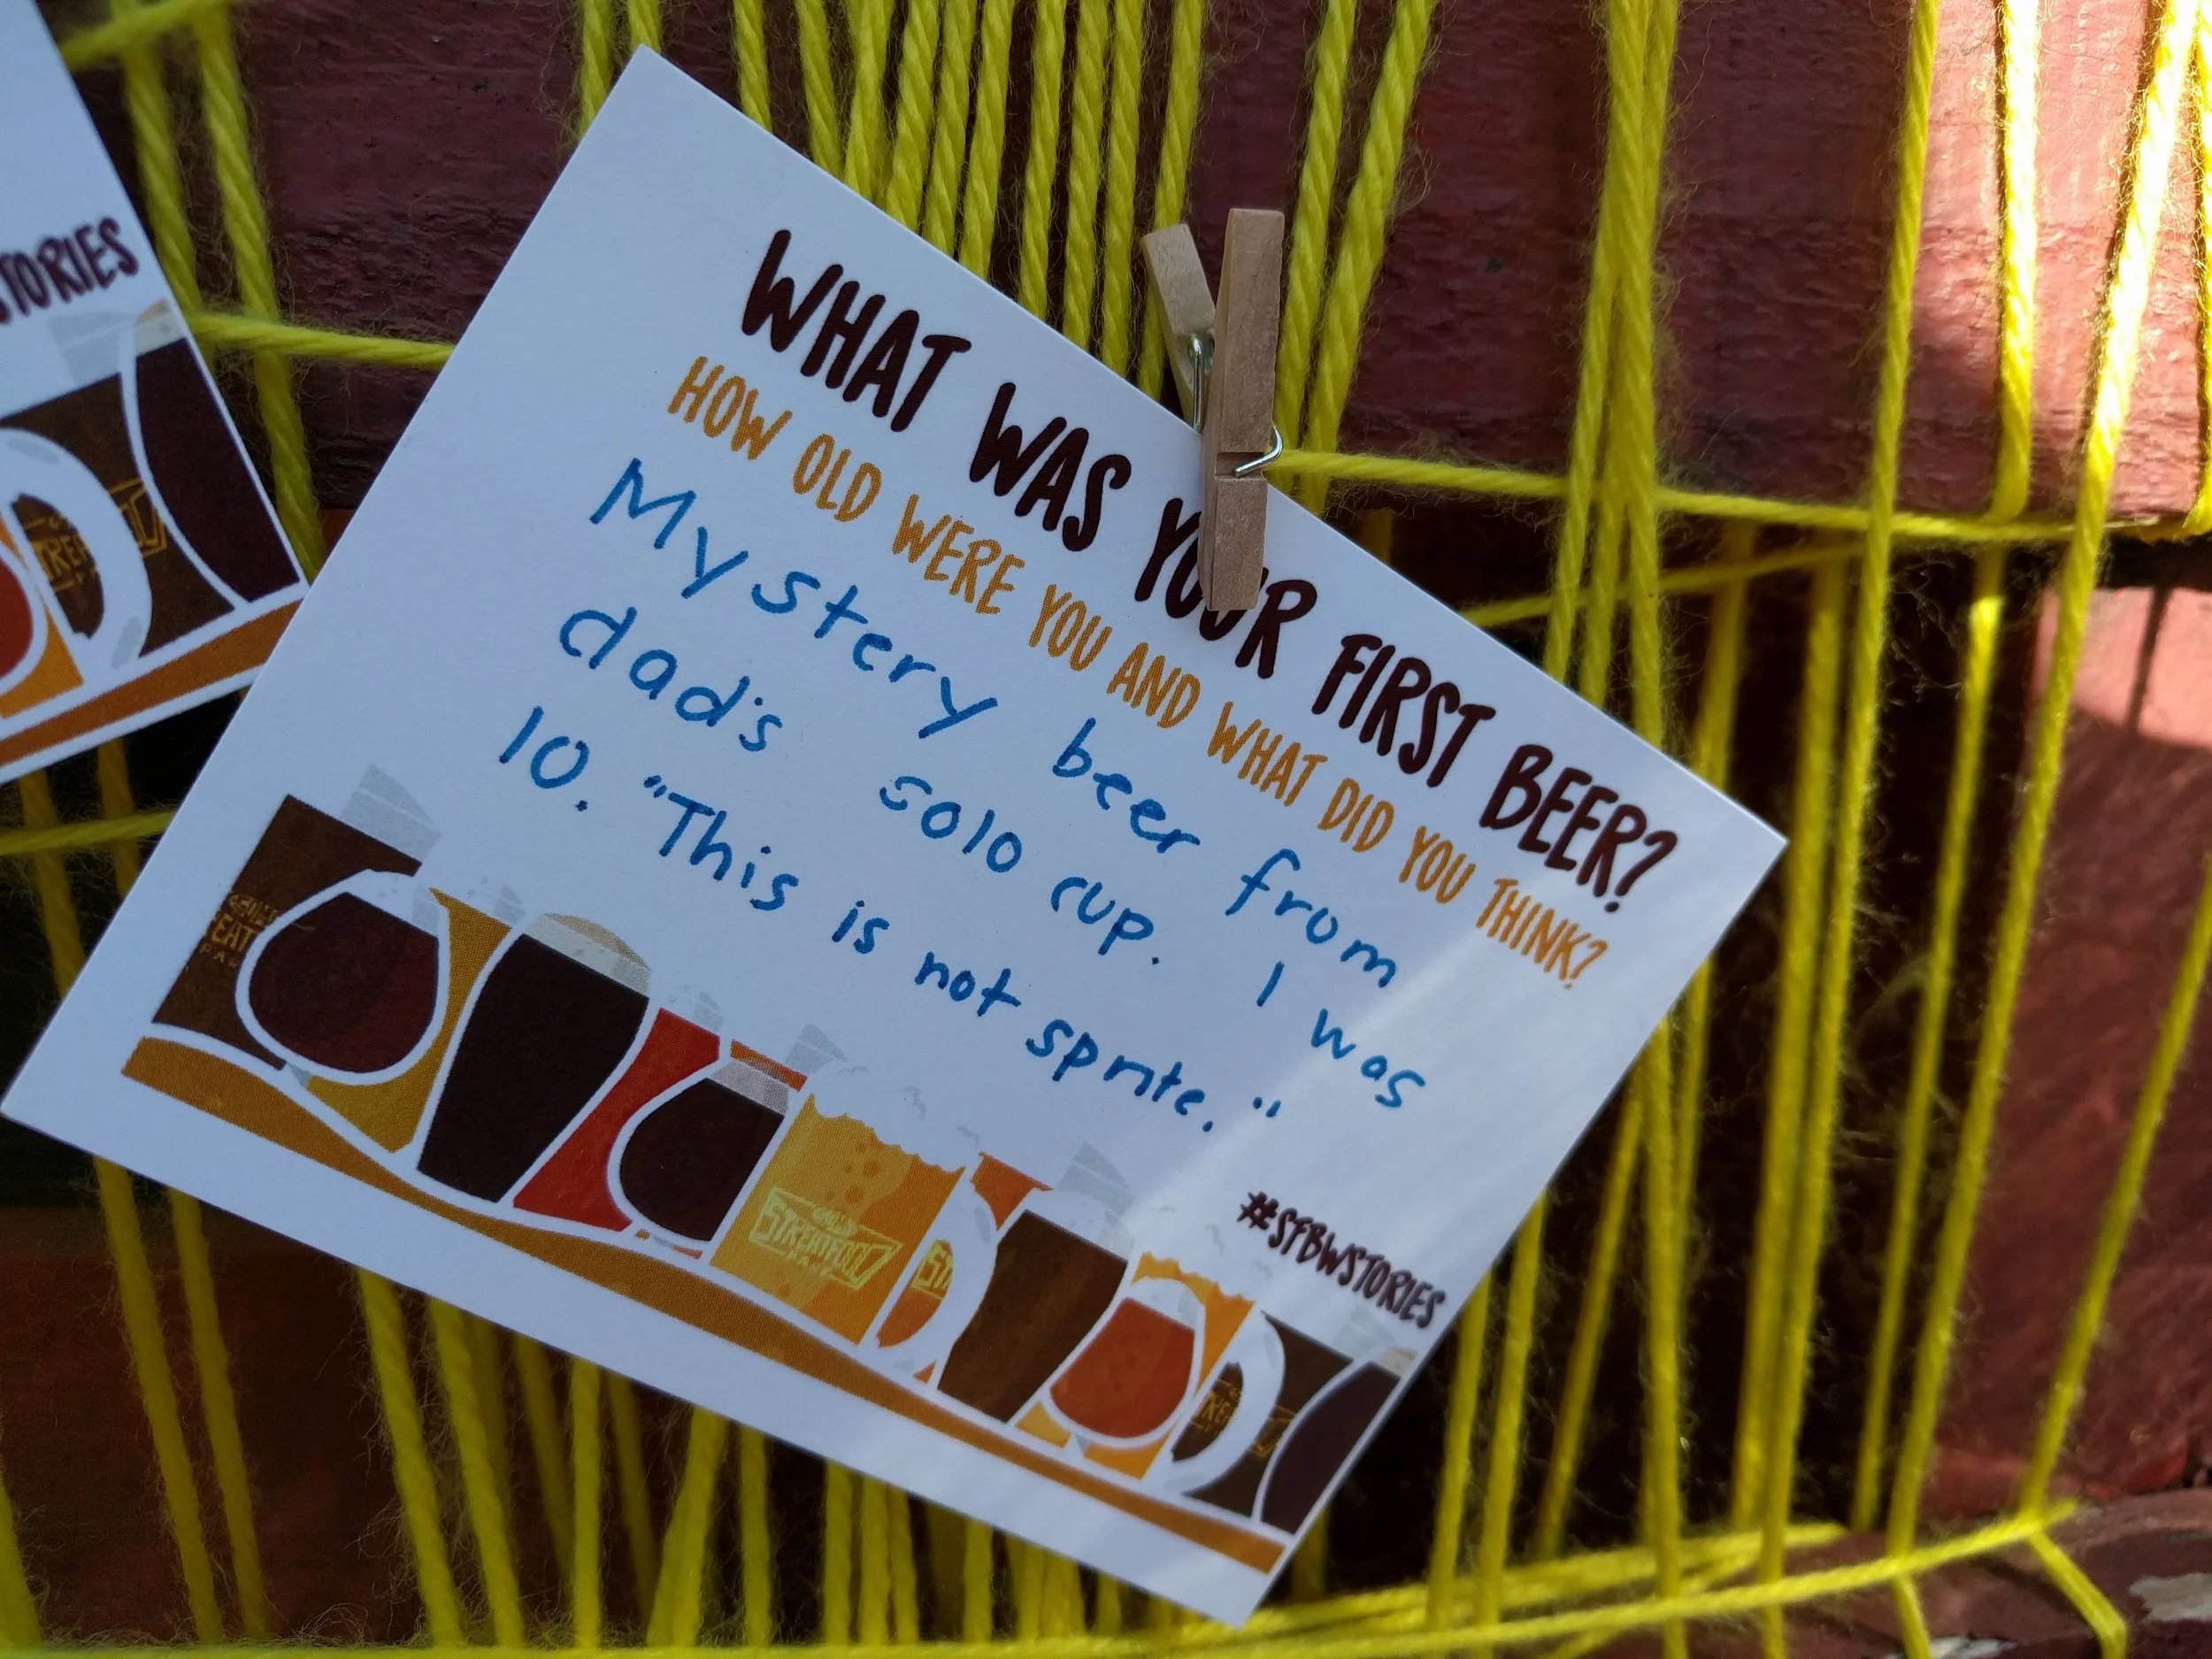 TORIES
WHAT WAS YOUR FIRST BEER?
HOW OLD WERE YOU AND WHAT DID YOU THINK?
Mystery beer from
dad's solo cup. I was
10. "This is not sprite."
#SFBWSTORIES
STREATFOOD
PARK